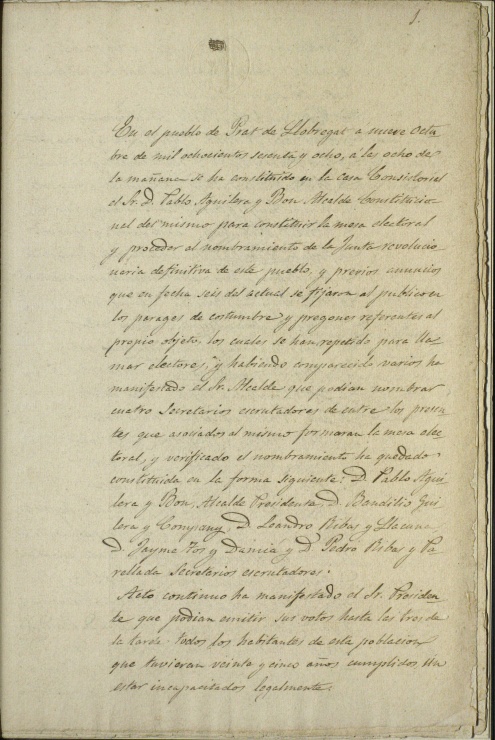 1.
En el pueblo de Prat de Llobregat a nueve Octu
bre de mil ochocientos sesenta y ocho, á las ocho de
la mañana se ha constituido en la Casa Consistorial
el Sr. D. Pablo Aguilera y Bou Alcalde Constitucio
nal del mismo para constituir la mesa electoral
y proceder al nombramiento de la Junta revolucio
naria definitiva de este pueblo, y previos anuncios
que en fecha seis del actual se fijaron al publico en
los parages de costumbre y pregones referentes al
propio objeto, los cuales se han repetido para lla=
mar electores, y habiendo comparecido varios ha
manifestado el Sr. Alcalde que podian nombrar
cuatro Secretarios escrutadores de entre los presen
tes que asociados al mismo formaran la mesa elec
toral, y verificado el nombramiento ha quedado
constituida en la forma siguiente: D. Pablo Agui
lera y Bou, Alcalde Presidente, D. Baudilio Gui
lera y Company, D. Leandro Ribas y Llacuna,
D. Jayme y y D. Pedro Ribas y Pa
rellada Secretarios escrutadores.
Acto continuo ha manifestado el Sr. Presiden
te que podian emitir sus votos hasta las tres de
la tarde todos los habitantes de esta poblacion
que tuvieran veinte y cinco años cumplidos sin
estar incapacitados legalmente.